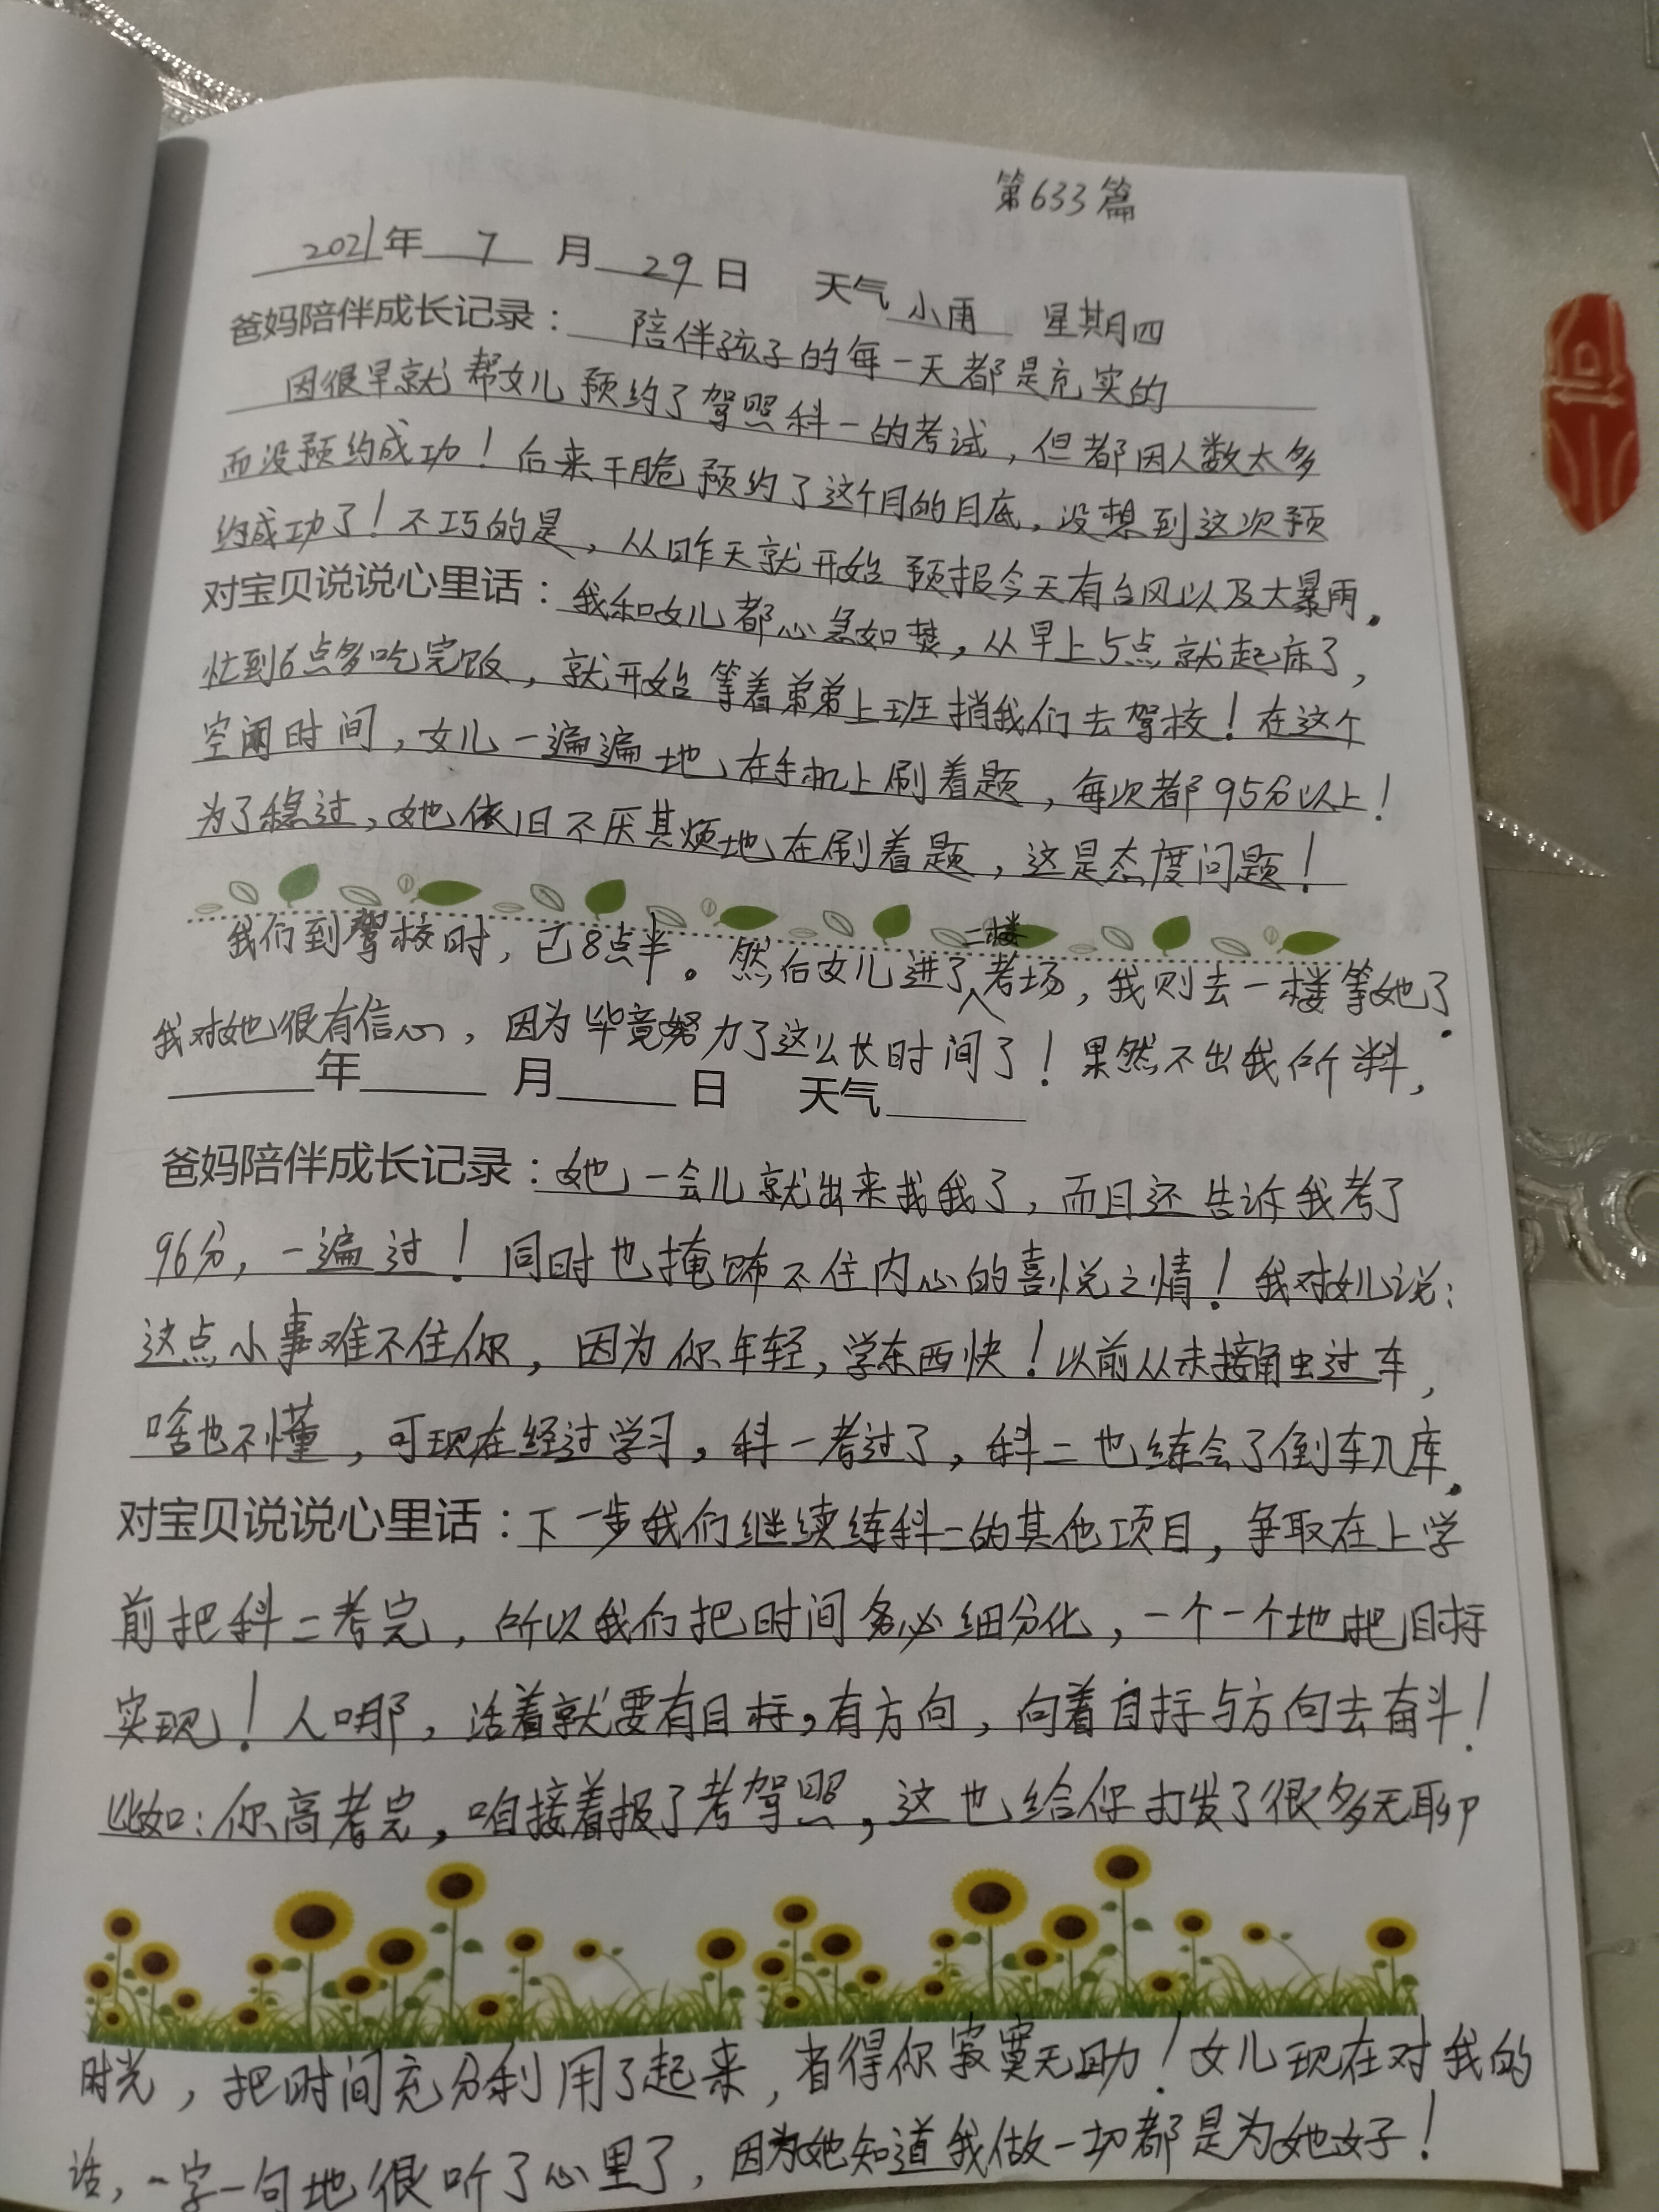 第633篇
2021年 7 月 29 日 天气 小雨 星期四
爸妈陪伴成长记录：陪伴孩子的每一天都是充实的
因很早就帮女儿预约了驾照科一的考试，但都因人数太多
而没预约成功！后来干脆预约了这个月的月底，没想到这次预
约成功了！不巧的是，从昨天就开始预报今天有台风以及大暴雨。
对宝贝说说心里话：我和女儿都心急如焚，从早上5点就起床了，
忙到6点多吃完饭，就开始等着弟弟上班捎我们去驾校！在这个
空闲时间，女儿一遍遍地在手机上刷着题，每次都95分以上！
为了稳过，她依旧不厌其烦地在刷着题，这是态度问题！
我们到驾校时，已8点半。然后女儿进了二楼考场，我则去一楼等她了.
我对她很有信心，因为毕竟努力了这么长时间了！果然不出我所料，
年 月 日 天气
爸妈陪伴成长记录：她一会儿就出来找我了，而且还告诉我考了
96分，一遍过！同时也掩饰不住内心的喜悦之情！我对女儿说：
这点小事难不住你，因为你年轻，学东西快！以前从未接触过车，
啥也不懂，可现在经过学习，科一考过了，科二也练会了倒车入库。
对宝贝说说心里话：下一步我们继续练科二的其他项目，争取在上学
前把科二考完，所以我们把时间务必细分化，一个一个地把目标
实现！人哪，活着就要有目标，有方向，向着目标与方向去奋斗！
比如：你高考完，咱接着报了考驾照，这也给你打发了很多无聊
时光，把时间充分利用了起来，省得你寂寞无助！女儿现在对我的
话，一字一句地很听了心里了，因为她知道我做一切都是为她好！